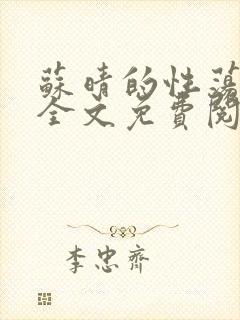 蘇晴的性蕩
全文免費閱
李忠齊